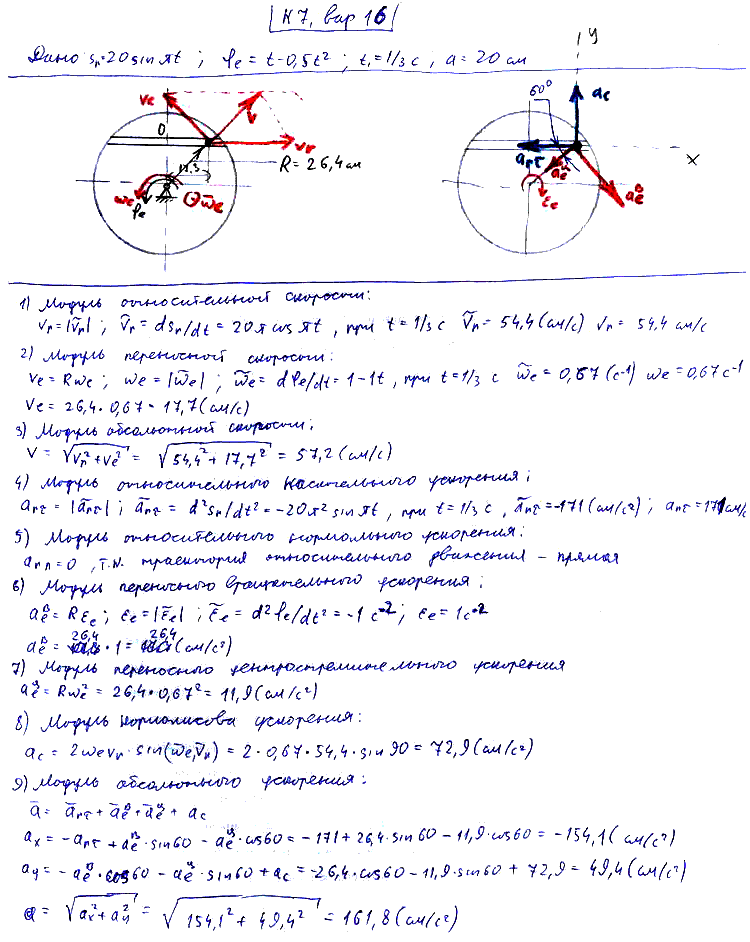 К7, вар 16
Дано sr=20 sin πt ; φe = t-0,5t² ; t₁=1/3 c ; a = 20 см
y
ve
v
60°
ac
O
vr
arτ
R = 26,4 см
aeц
x
17.3
ωe
φe
ω̄e
εe
aeв
1) Модуль относительной скорости:
vr=|ṽr| ; ṽr = dsr/dt = 20π cos πt , при t = 1/3 c ṽr = 54,4 (см/с) vr = 54,4 см/с
2) Модуль переносной скорости:
ve = Rωe ; ωe = |ω̃e| ; ω̃e = dφe/dt = 1-1t , при t=1/3 c ω̃e = 0,67 (c⁻¹) ωe = 0,67 c⁻¹
ve = 26,4 · 0,67 = 17,7 (см/с)
3) Модуль абсолютной скорости:
v = √(vr² + ve²) = √(54,4² + 17,7²) = 57,2 (см/с)
4) Модуль относительного касательного ускорения:
arτ = |ãrτ| ; ãrτ = d²sr/dt² = -20π² sin πt , при t = 1/3 c , ãrτ = -171 (см/с²) ; arτ = 171 см/с
5) Модуль относительного нормального ускорения:
arn = 0 , т.к. траектория относительного движения - прямая
6) Модуль переносного вращательного ускорения:
aeв = Rεe ; εe = |ε̃e| ; ε̃e = d²φe/dt² = -1 c⁻² ; εe = 1 c⁻²
aeв = 26,4 · 1 = 26,4 (см/с²)
7) Модуль переносного центростремительного ускорения
aeц = Rωe² = 26,4 · 0,67² = 11,9 (см/с²)
8) Модуль кориолисова ускорения:
ac = 2ωevr · sin(ω̄e, v̄r) = 2 · 0,67 · 54,4 · sin 90 = 72,9 (см/с²)
9) Модуль абсолютного ускорения:
ā = ārτ + āeв + āeц + ac
ax = -arτ + aeв · sin60 - aeц · cos60 = -171 + 26,4 · sin 60 - 11,9 · cos60 = -154,1 (см/с²)
ay = -aeв · cos60 - aeц · sin60 + ac = -26,4 · cos60 - 11,9 · sin60 + 72,9 = 49,4 (см/с²)
a = √(ax² + ay²) = √(154,1² + 49,4²) = 161,8 (см/с²)